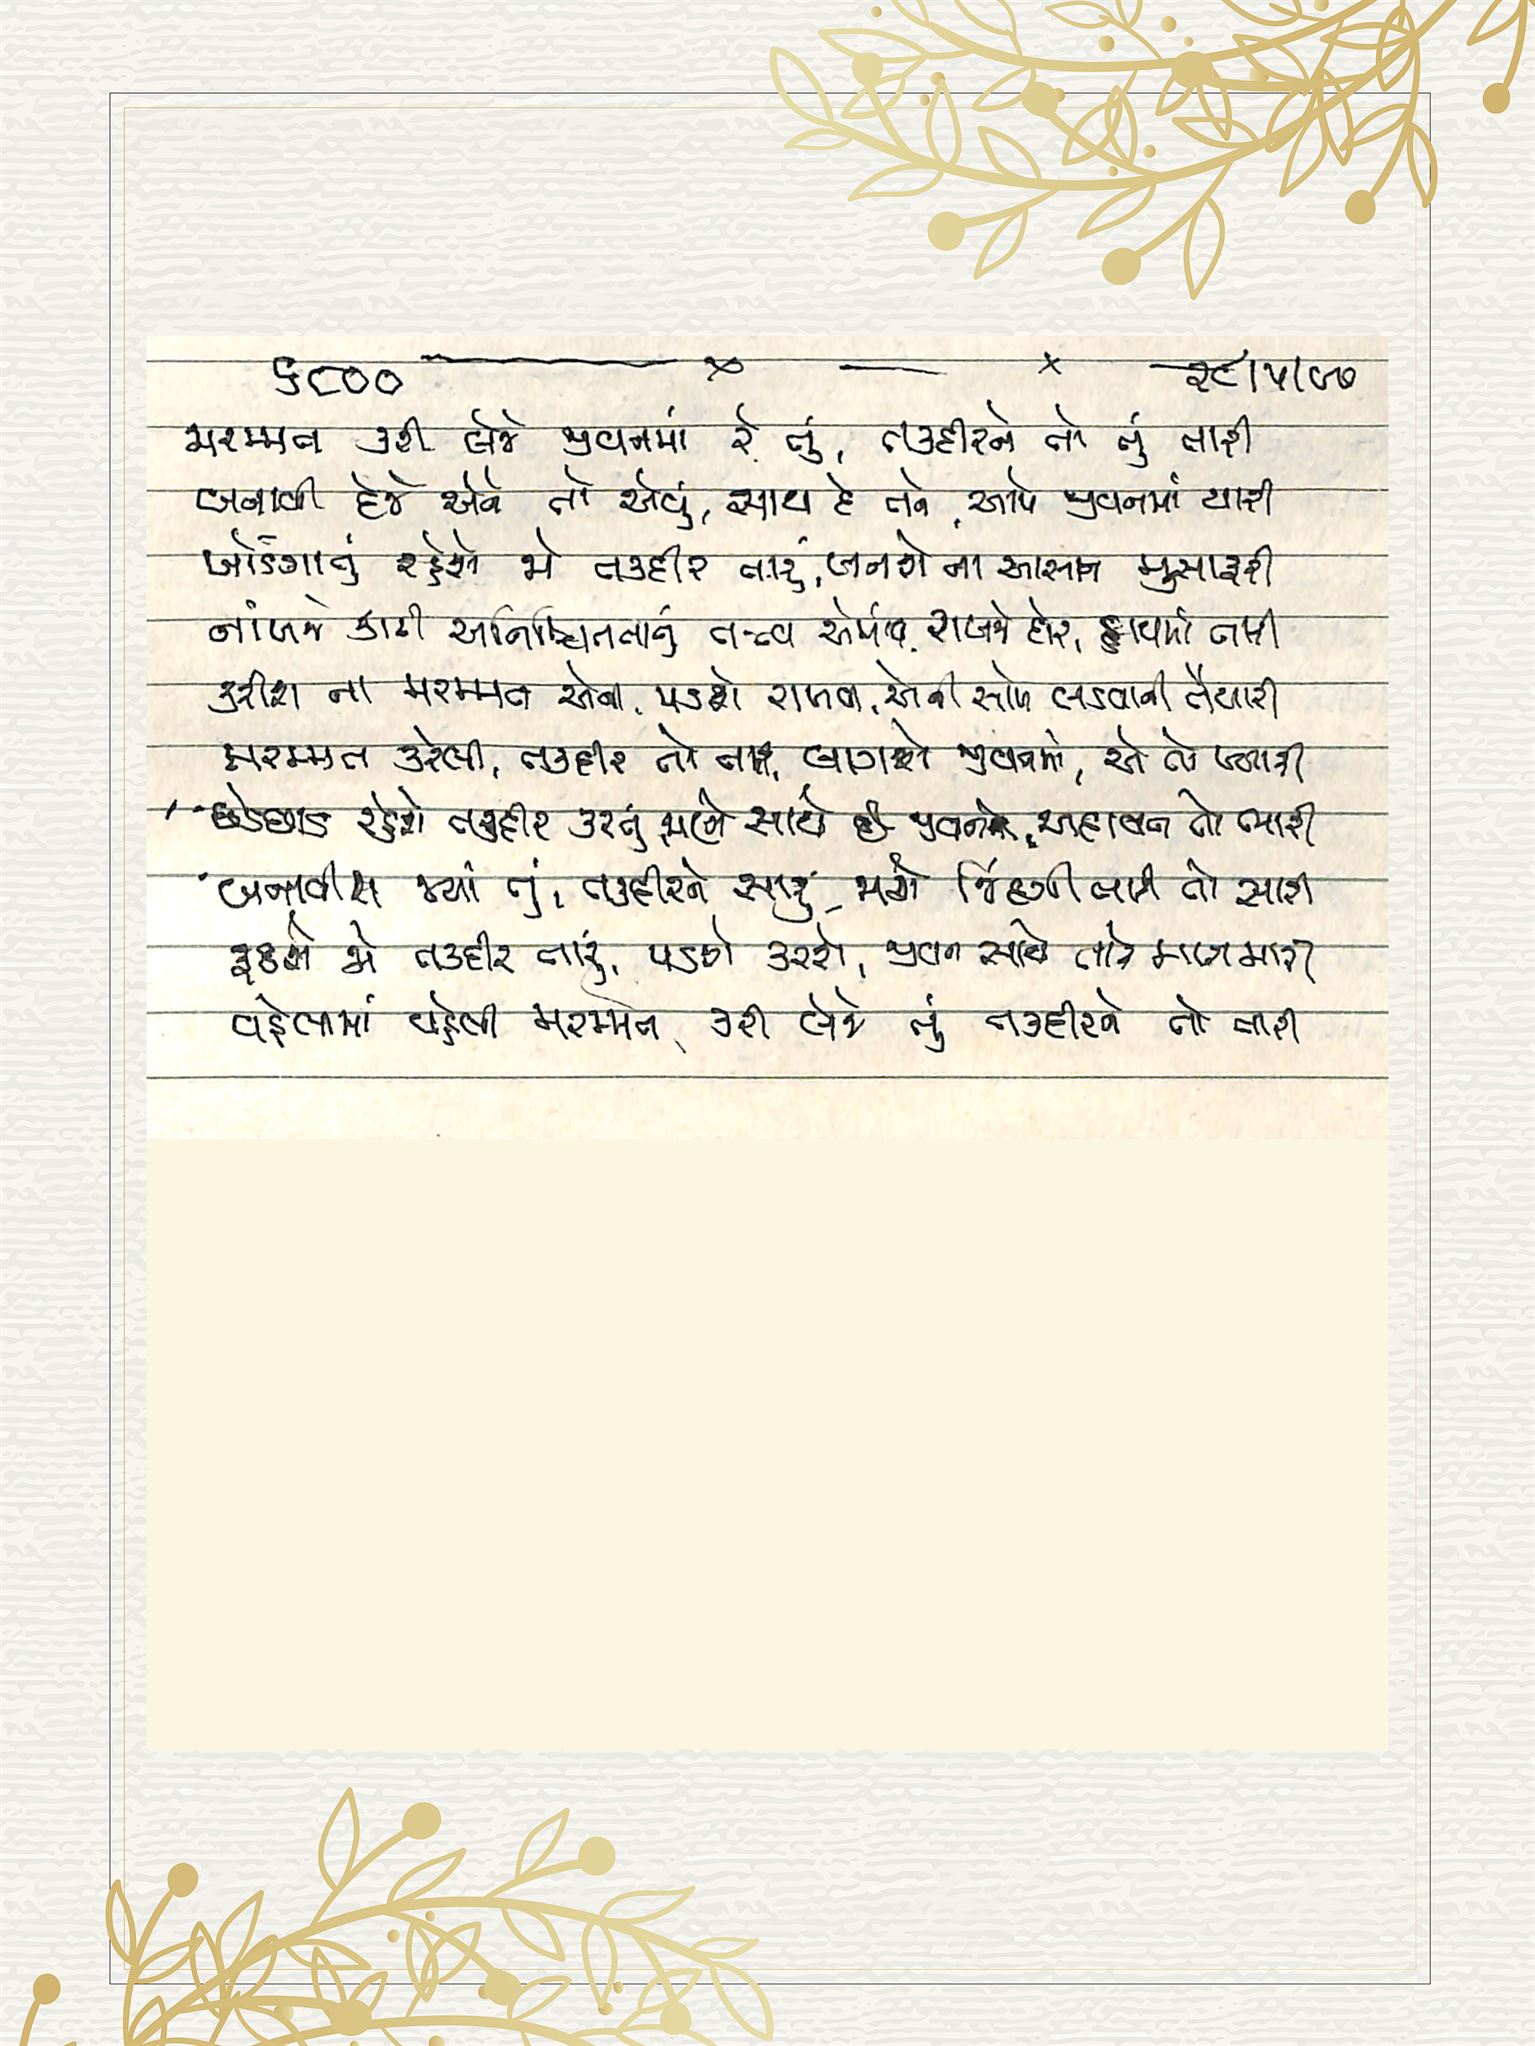 ૬૮૦૦ ૨૯/૫/૯૭
મરમ્મત કરી લેજે જીવનમાં રે તું, તકદીરને તો તું તારી
બનાવી દેજે એને તો એવું, સાથ દે તને, આપે જીવનમાં યારી
ખોડંગાતું રહેશે જો તકદીર તારું, બનશે ના આસાન મુસાફરી
નાંખજે કાઢી અનિશ્ચિતતાનું તત્ત્વ એમાંથી, રાખજે દોર, હાથમાં
કરીશ ના મરમ્મત એના, પડશે રાખવી, એની સામે લડવાની તૈયારી
મરમ્મત કરેલી, તકદીર તો તારું, લાગશે જીવનમાં, એ તો પ્યારી
છેડછાડ રહેશે તકદીર કરતું જાણે સાથે જીવનને, અદાવત તો
બનાવીશ જ્યાં તું, તકદીરને સારું, જાશે જિંદગી તારી તો સારી
રૂઠશે જો તકદીર તારું, પડશે કરશે, જીવન સાથે તારે મારામારી
વહેલામાં વહેલી મરમ્મત, કરી લેજે તું તકદીરને તો તારી